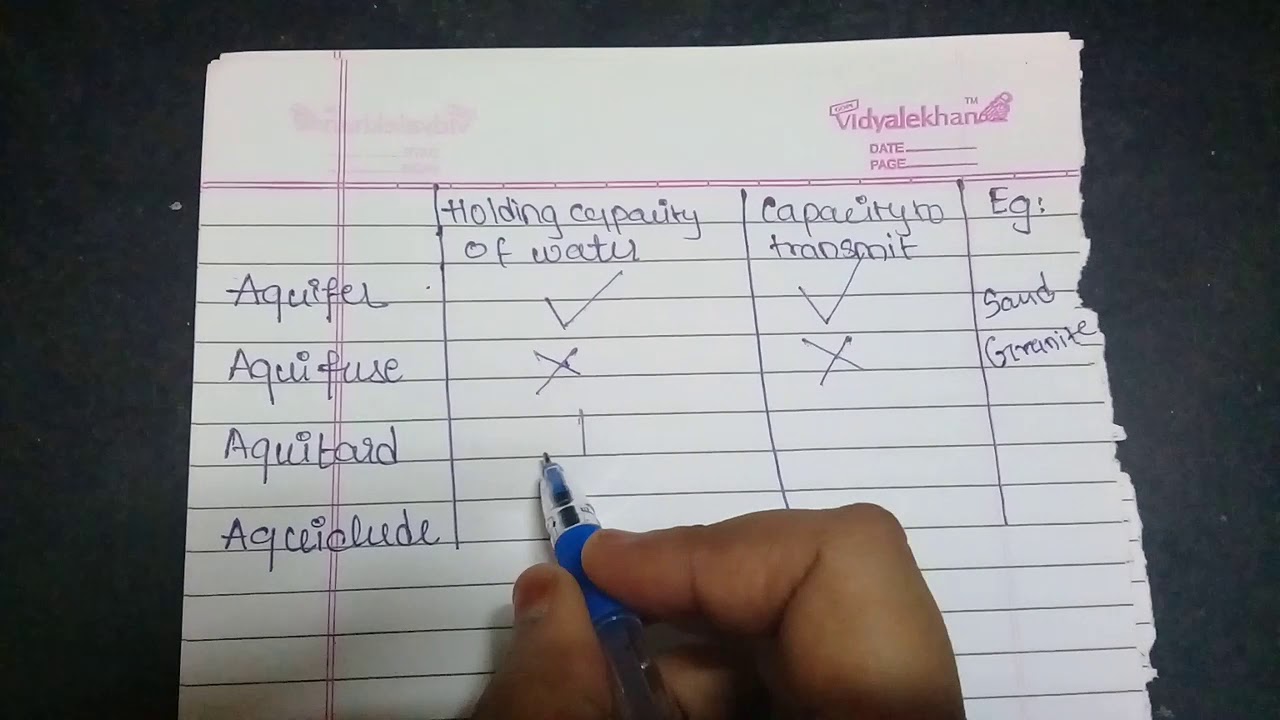 Vidyalekhan TM
DATE
PAGE
Holding capacity Capacity to Eg:
of water transmit
Aquifer ✓ ✓ Sand
Aquifuse ✗ ✗ Granite
Aquitard
Aquiclude